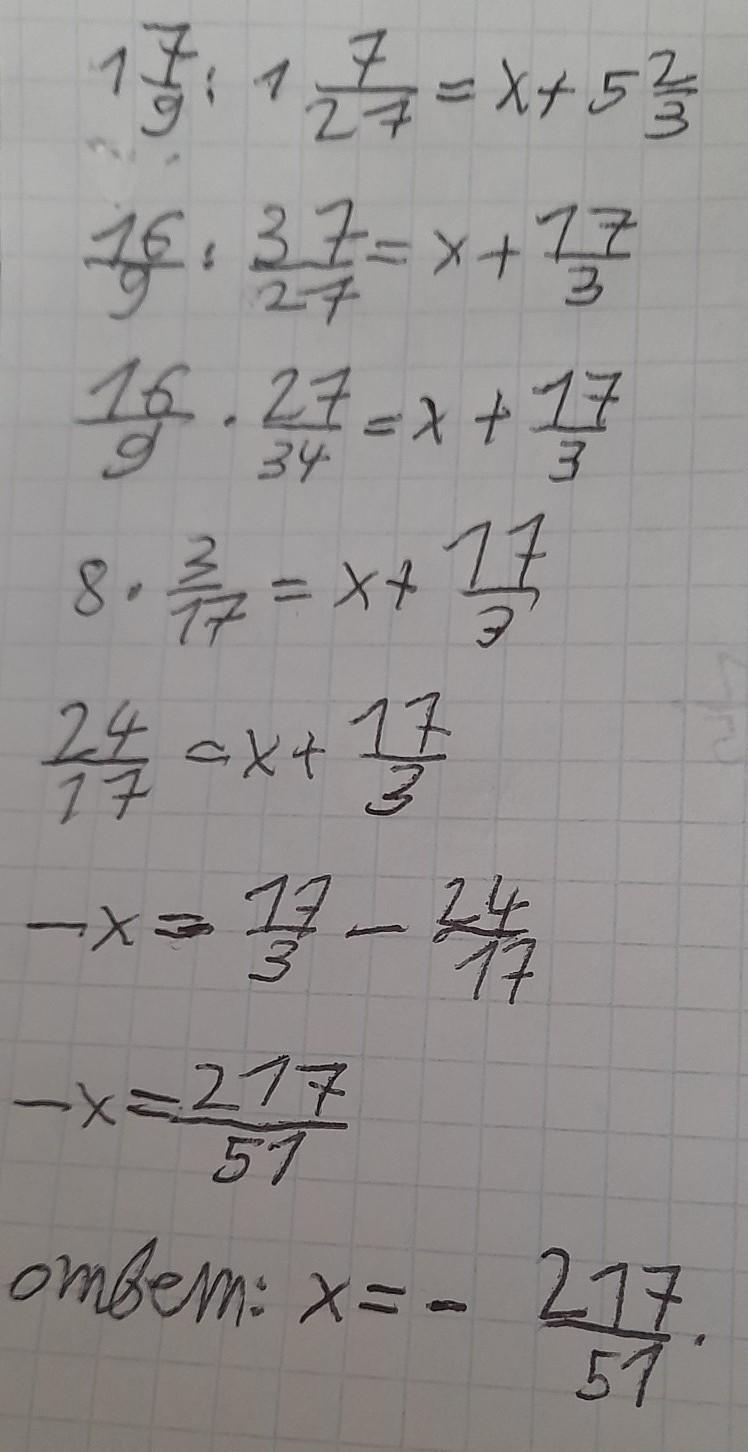 1 7/9 : 1 7/27 = x + 5 2/3
16/9 : 37/27 = x + 17/3
16/9 · 27/34 = x + 17/3
8 · 3/17 = x + 17/3
24/17 = x + 17/3
-x = 17/3 - 24/17
-x = 217/51
ответ: x = - 217/51.